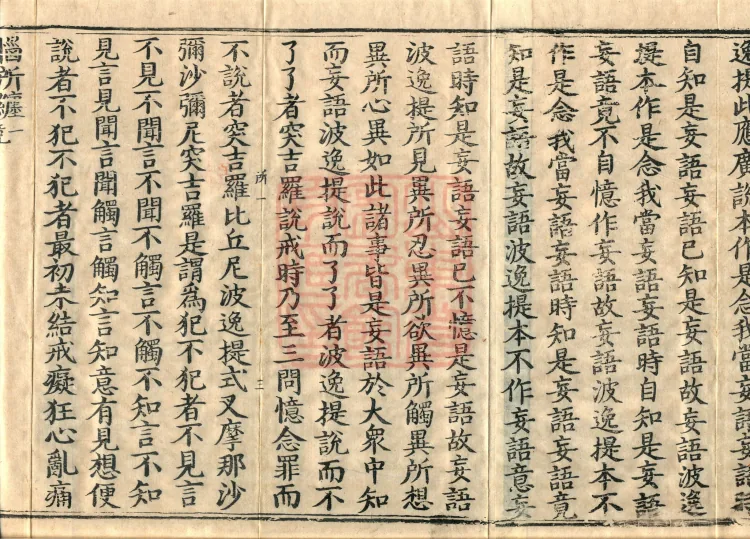 逸提此應廣說本作是念我當妄語妄語
自知是妄語妄語已知是妄語故妄語波逸
提本作是念我當妄語妄語時自知是妄語
妄語竟不自憶作妄語故妄語波逸提本不
作是念我當妄語妄語時知是妄語妄語竟
知是妄語故妄語波逸提本不作妄語意妄
語時知是妄語妄語已不憶是妄語故妄語
波逸提所見異所忍異所欲異所觸異所想
異所心異如此諸事皆是妄語於大衆中知
而妄語波逸提說而了了者波逸提說而不
了了者突吉羅說戒時乃至三問憶念罪而
不說者突吉羅比丘尼波逸提式叉摩那沙
彌沙彌尼突吉羅是謂爲犯不犯者不見言
不見不聞言不聞不觸言不觸不知言不知
見言見聞言聞觸言觸知言知意有見想便
說者不犯不犯者最初未結戒癡狂心亂痛
惱所纏一竟
所一
三